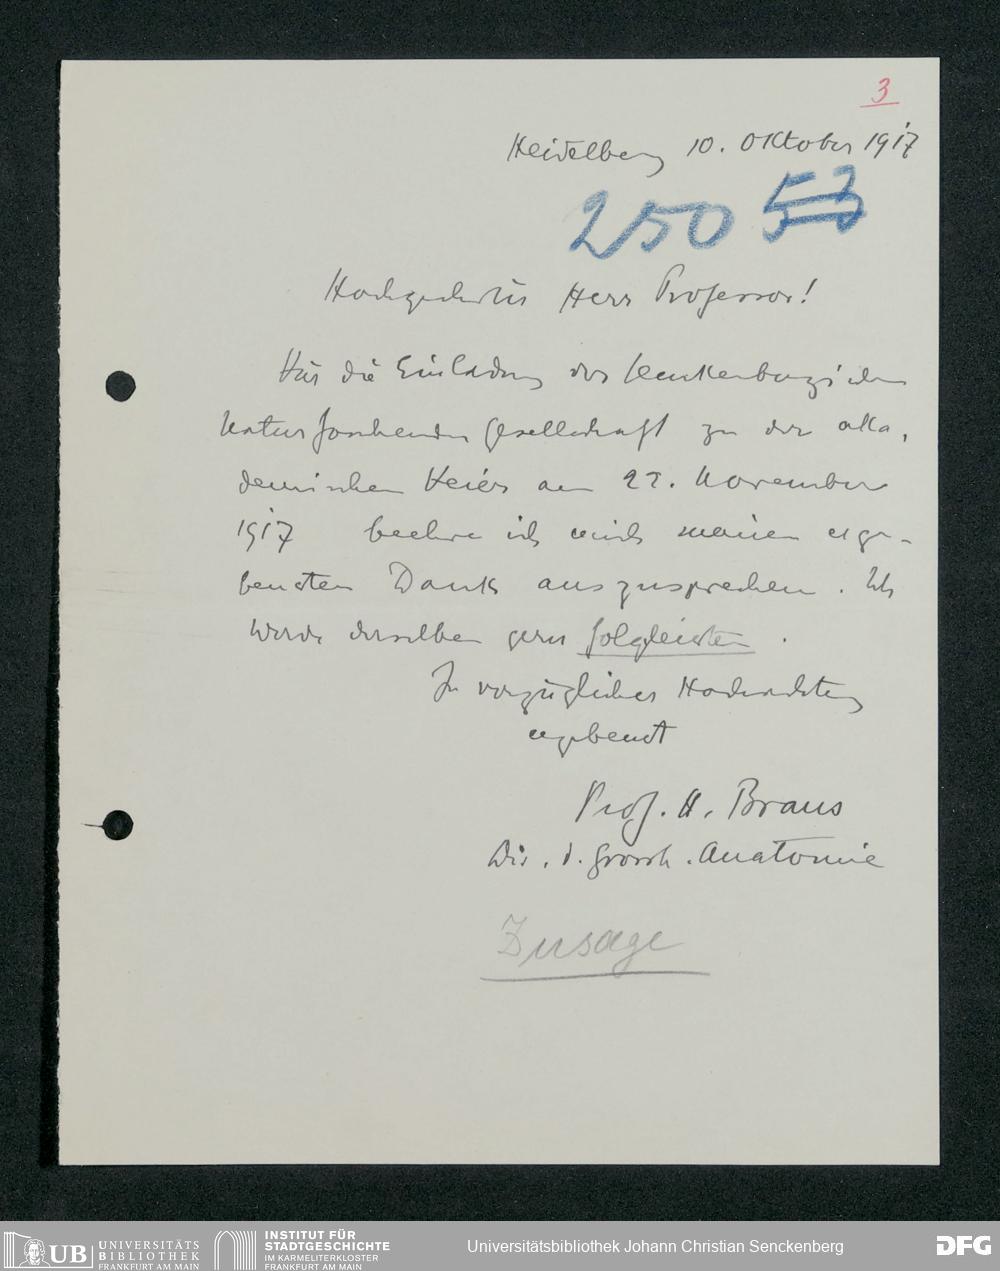 3
Heidelberg 10. Oktober 1917
250 53
Hochgeehrter Herr Professor!
Für die Einladung der Senckenbergischen
Naturforschenden Gesellschaft zu der aka-
demischen Feier am 22. November
1917 beehre ich mich meinen erge-
bensten Dank auszusprechen. Ich
werde derselben gern folgleisten.
In vorzüglicher Hochachtung
ergebenst
Prof. H. Braus
Dir. d. Grossh. Anatomie
Zusage
UB UNIVERSITÄTS
BIBLIOTHEK
FRANKFURT AM MAIN
INSTITUT FÜR
STADTGESCHICHTE
IM KARMELITERKLOSTER
FRANKFURT AM MAIN
Universitätsbibliothek Johann Christian Senckenberg
DFG